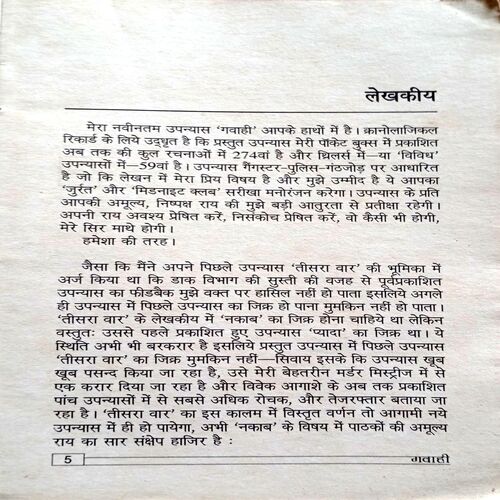 लेखकीय
मेरा नवीनतम उपन्यास ‘गवाही’ आपके हाथों में है। क्रानोलाजिकल
रिकार्ड के लिये उद्धृत है कि प्रस्तुत उपन्यास मेरी पॉकेट बुक्स में प्रकाशित
अब तक की कुल रचनाओं में 274वां है और थ्रिलर्स में—या ‘विविध’
उपन्यासों में—59वां है। उपन्यास गैंगस्टर-पुलिस-गंठजोड़ पर आधारित
है जो कि लेखन में मेरा प्रिय विषय है और मुझे उम्मीद है ये आपका
‘जुर्रत’ और ‘मिडनाइट क्लब’ सरीखा मनोरंजन करेगा। उपन्यास के प्रति
आपकी अमूल्य, निष्पक्ष राय की मुझे बड़ी आतुरता से प्रतीक्षा रहेगी।
अपनी राय अवश्य प्रेषित करें, निसंकोच प्रेषित करें, वो कैसी भी होगी,
मेरे सिर माथे होगी।
हमेशा की तरह।
जैसा कि मैंने अपने पिछले उपन्यास ‘तीसरा वार’ की भूमिका में
अर्ज किया था कि डाक विभाग की सुस्ती की वजह से पूर्वप्रकाशित
उपन्यास का फीडबैक मुझे वक्त पर हासिल नहीं हो पाता इसलिये अगले
ही उपन्यास में पिछले उपन्यास का जिक्र हो पाना मुमकिन नहीं हो पाता।
‘तीसरा वार’ के लेखकीय में ‘नकाब’ का जिक्र होना चाहिये था लेकिन
वस्तुतः उससे पहले प्रकाशित हुए उपन्यास ‘प्यादा’ का जिक्र था। ये
स्थिति अभी भी बरकरार है इसलिये प्रस्तुत उपन्यास में पिछले उपन्यास
‘तीसरा वार’ का जिक्र मुमकिन नहीं—सिवाय इसके कि उपन्यास खूब
खूब पसन्द किया जा रहा है, उसे मेरी बेहतरीन मर्डर मिस्ट्रीज में से
एक करार दिया जा रहा है और विवेक आगाशे के अब तक प्रकाशित
पांच उपन्यासों में से सबसे अधिक रोचक, और तेजरफ्तार बताया जा
रहा है। ‘तीसरा वार’ का इस कालम में विस्तृत वर्णन तो आगामी नये
उपन्यास में ही हो पायेगा, अभी ‘नकाब’ के विषय में पाठकों की अमूल्य
राय का सार संक्षेप हाजिर है :
5 गवाही